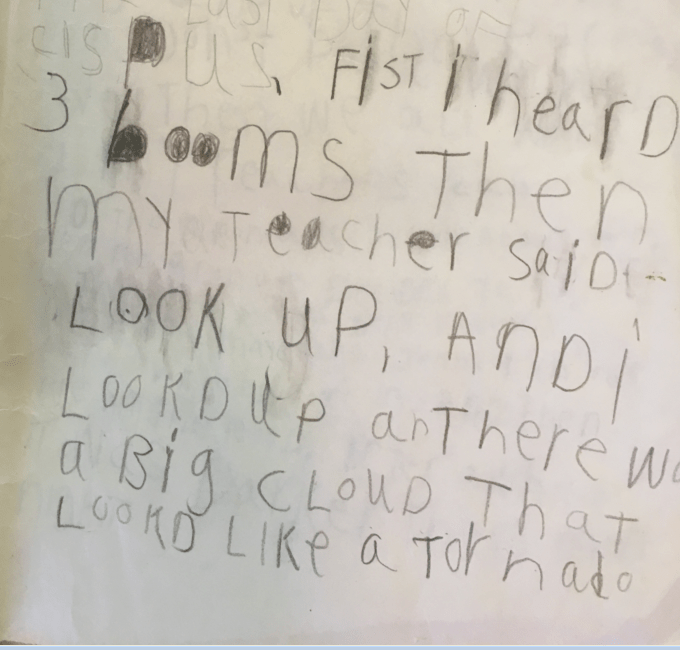 Last Day of
cisPus, FiST i heard
3 booms Then
my Teacher saiD
LOOK UP, AND i
LOOKD UP anThere wa
a Big CLOUD That
LOOKD LIKe a Tornado